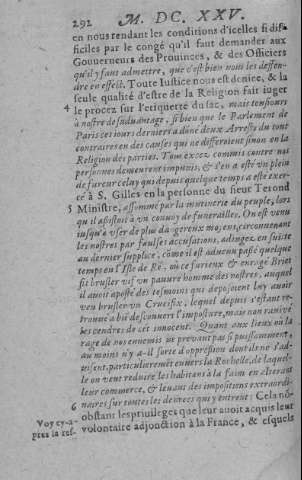 292 M. DC. XXV.
en nous rendant les conditions d'icelles si dif-
ficiles par le congé qu'il faut demander aux
Gouuerneurs des Prouinces, & des Officiers
qu'il y faut admettre, que c'est bien nous les deffen-
dre en effect. Toute Iustice nous est deniee, & la
seule qualité d'estre de la Religion fait iuger
4 le procez sur l'etiquette du sac, mais tousiours
à nostre desaduantage, si bien que le Parlement de
Paris ces iours derniers a doné deux Arrests du tout
contraires en des causes qui ne differoient sinon en la
Religion des parties. Tous excez commis contre nos
personnes demeurent impunis, & s'en a esté vn plein
de fureur celuy qui depuis quelque temps a esté exer-
cé à S. Gilles en la personne du sieur Terond
5 Ministre, assommé par la mutinerie du peuple, lors
qu'il assistoit à vn conuoy de funerailles. On est venu
iusqu'à vser de plus dangereux moyens, circonuenant
les nostres par faulses accusations, adiugez en suitte
au dernier supplice, côme il est aduenu passé quelque
temps en l'Isle de Ré, où ce furieux & enragé Briet
fit brusler vif vn pauure homme des nostres, auquel
il auoit aposté des tesmoins qui deposoient luy auoir
veu brusler vn Crucifix, lequel depuis s'estant re-
trouué a bié descouuert l'imposture, mais non rauiué
les cendres de cet innocent. Quant aux lieux où la
rage de nos ennemis ne preuaut pas si puissamment,
au moins n'y a-il sorte d'oppression dont ils ne s'ad-
uisent, particulierement enuers la Rochelle, de laquel-
le on veut reduire les habitans à la faim en alterant
leur commerce, & leuant des impositions extraordi-
6 naires sur toutes les denrees qui y entrent: Cela no-
Voy cy-a- obstant les priuileges que leur auoit acquis leur
pres la ref. volontaire adjonction à la France, & esquels